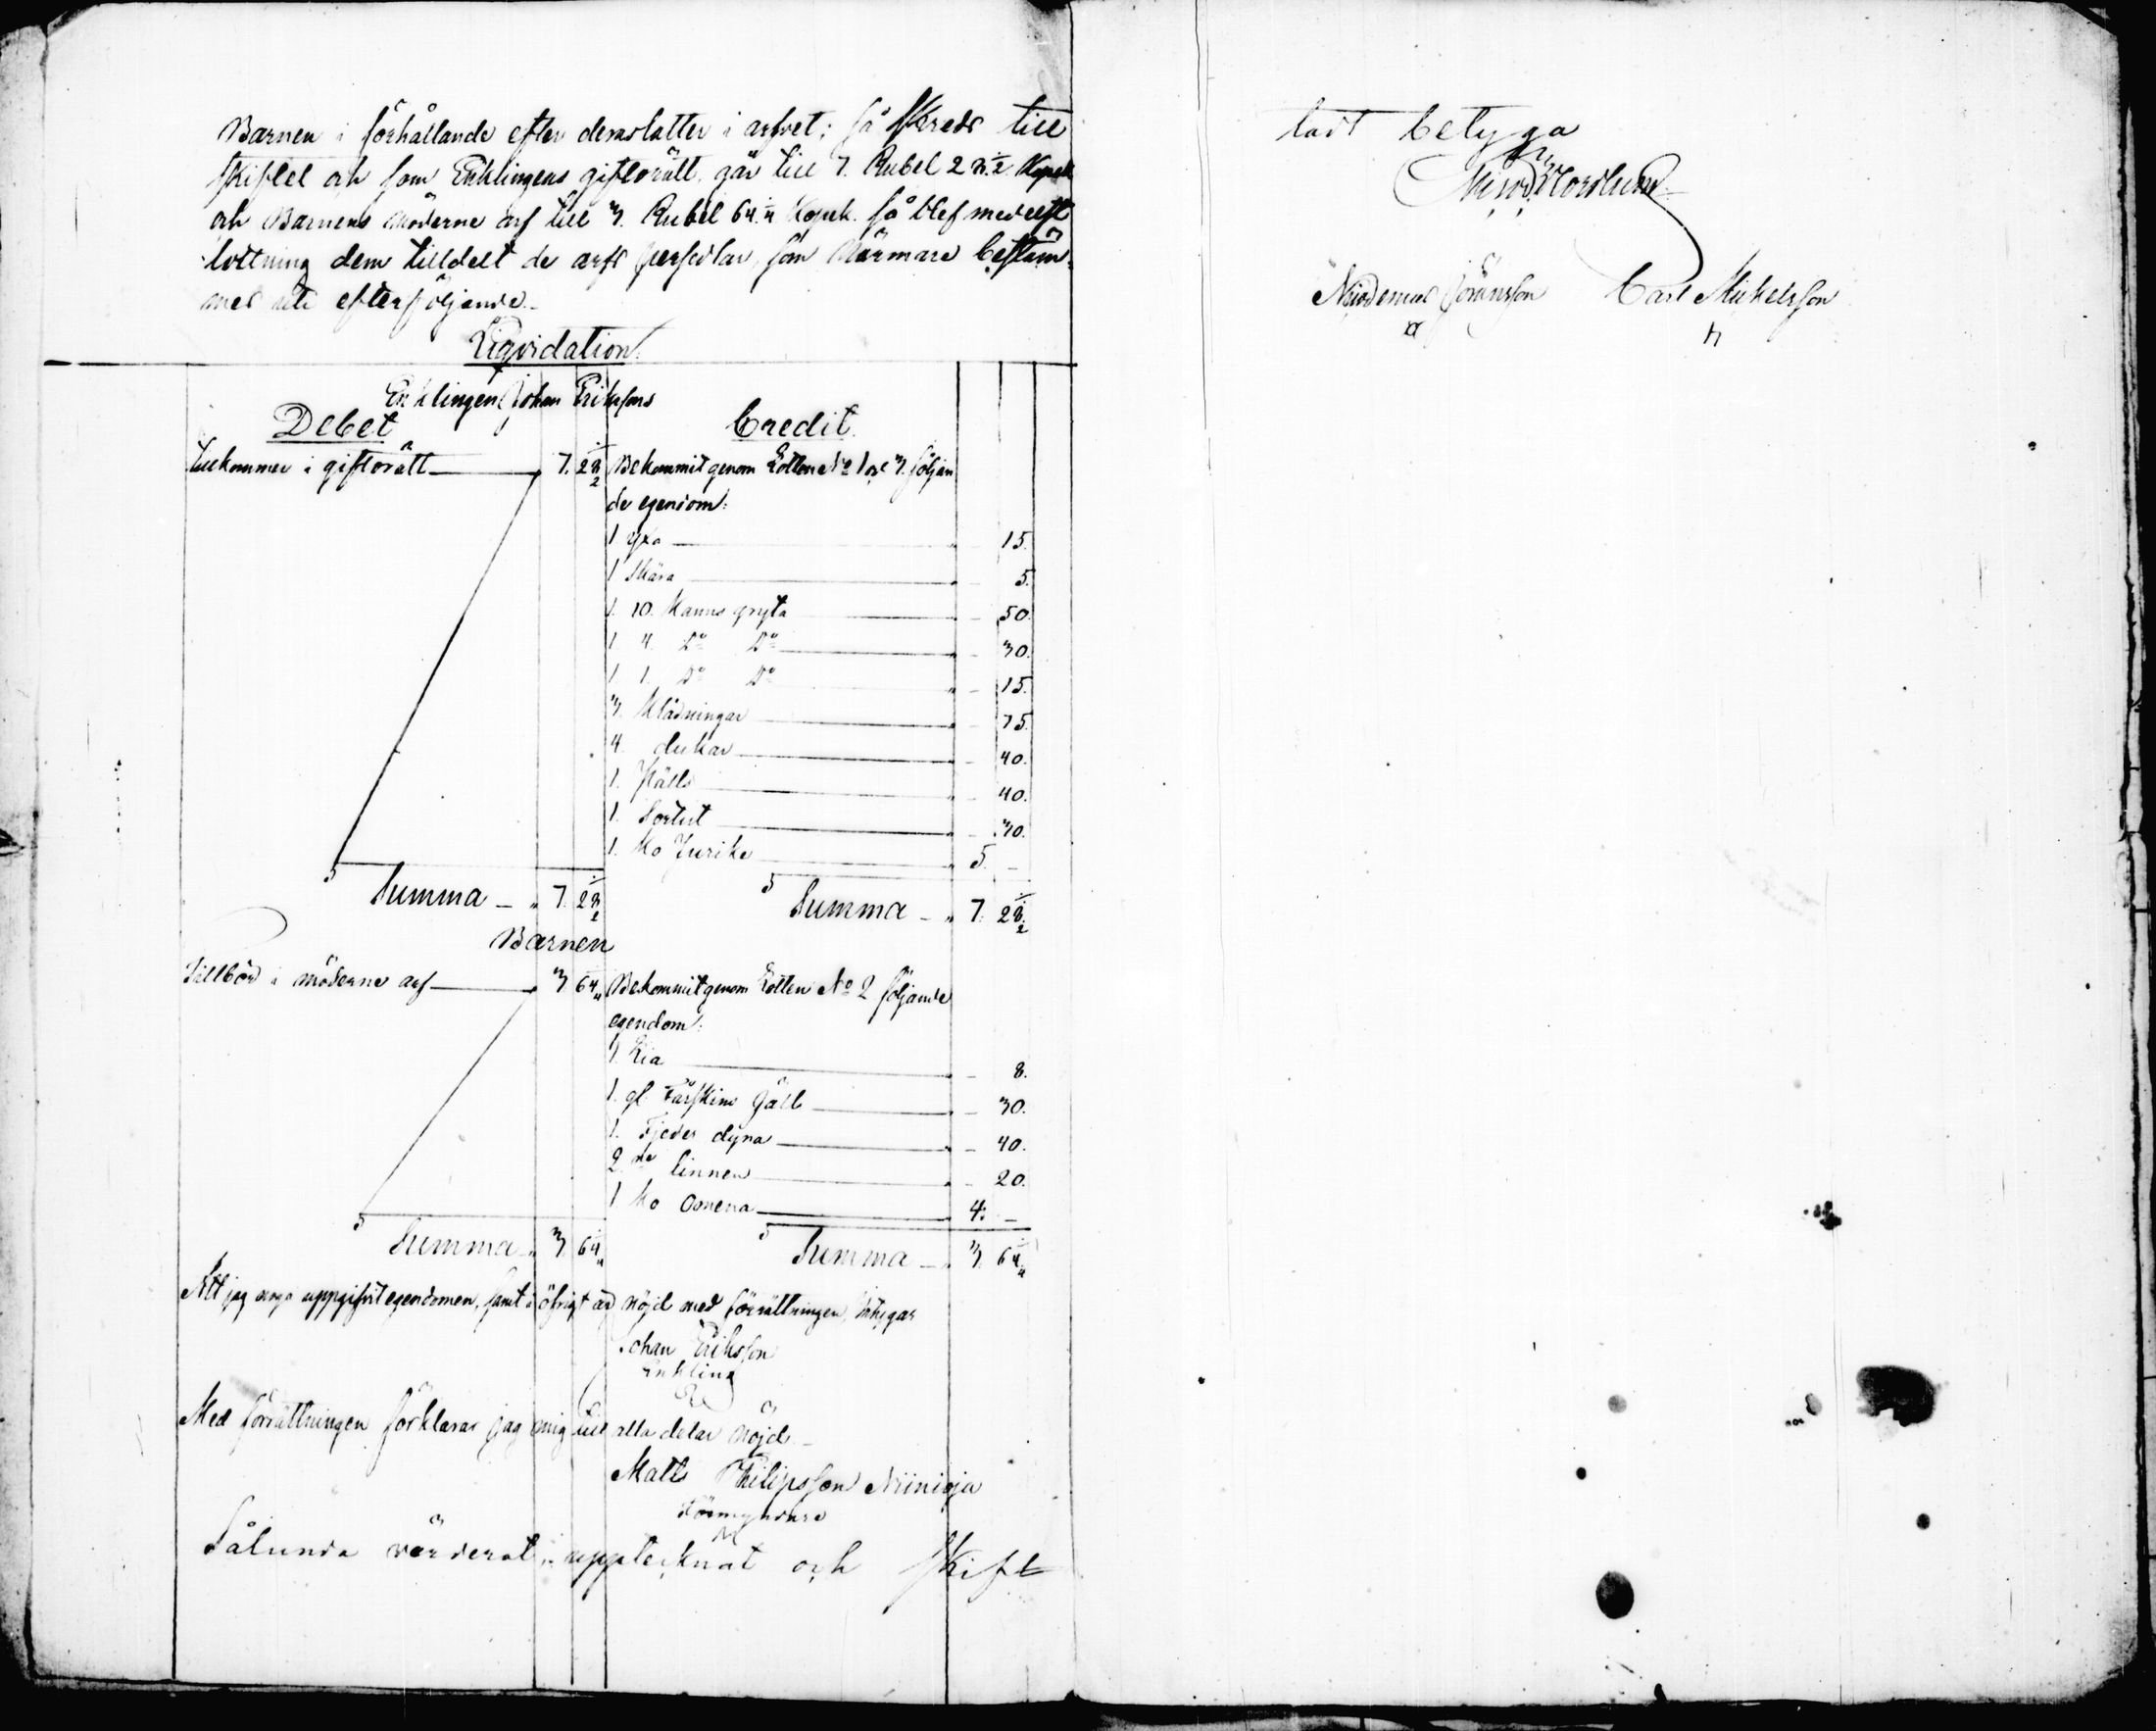 Barnen i förhållande efter deras lotter i arfvet; så skreds till
skiftet och som Enklingens giftorätt går till 7. Rubel 28.½ Kopek
och Barnens möderne arf till 3. Rubel 64.¼ Kopek. så blef medelst
lottning dem tilldelt de arfs persedlar, som närmare bestäm-
mes uti efterföljande.
Liqvidation.
Enklingen Johan Erikssons
Debet Credit
Tillkommer i giftorätt — " 7. 28½ Bekommit genom Lotten No 1 och 3. följan
de egendom:
1 yxa — " – 15.
1 Skära — " – 5.
1. 10. Kanns gryta — " – 50.
1. 4. Do Do — " – 30.
1. 1. Do Do " – 15.
3. Klädningar — " – 75.
4. dukar — " – 40.
1. " – 40.
1. Sortut — " – 30.
1. Ko Jurike — " 5. –
Summa – " 7. 28½ Summa – " 7. 28½
Barnen
Tillböd i möderne arf — " 3 64¼ Bekommit genom Lotten No 2 följande
egendom:
1. Lia — " – 8.
1. gl. Fårskins fäll — " – 30.
1. Fjeder dyna — " – 40.
2ne linnen — " – 20.
1 Ko Omena — " 4. –
Summa – " 3 64¼ Summa – " 3. 64¼
Att jag noga uppgifvit egendomen, samt i öfrigt är nöjd med förrättningen, intygar
Johan Eriksson
Enkling
Med förrättningen förklarar jag mig till alla delar nöjd –
Matts Philipsson Niinioja
Förmyndare
Sålunda värderat, upptecknat och skift
tadt betyga
Nordlund
Nicodemus Göransson Carl Mickelsson